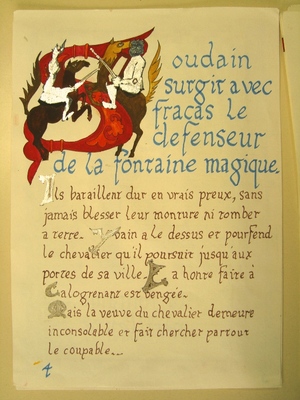 Soudain
surgit avec
fracas le
defenseur
de la fontaine magique.
Ils bataillent dur en vrais preux, sans
jamais blesser leur monture ni tomber
a terre. Yvain a le dessus et pourfend
le chevalier qu'il poursuit jusqu'aux
portes de sa ville. La honte faite à
Calogrenant est vengée.
Mais la veuve du chevalier demeure
inconsolable et fait chercher partout
le coupable...
4